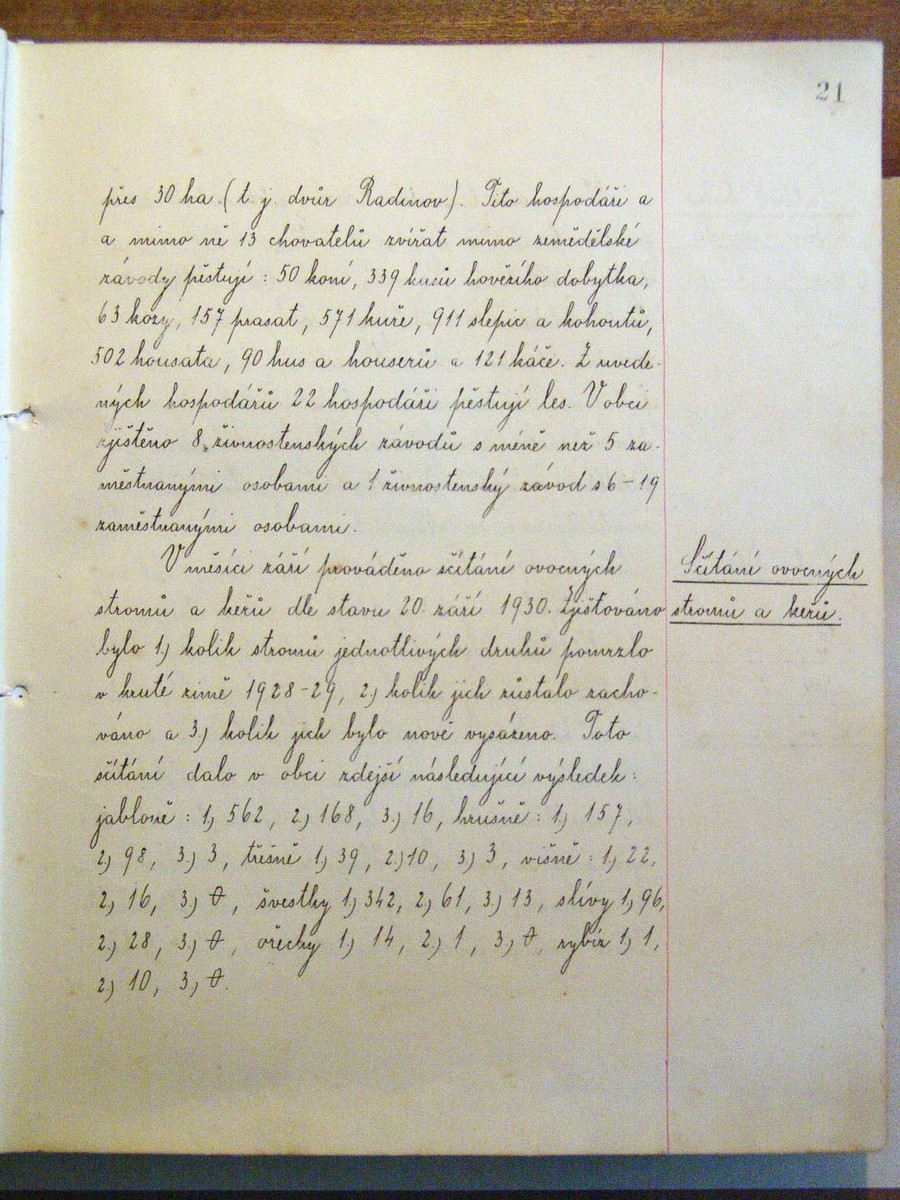 21
přes 30 ha (t. j. dvůr Radinov). Tito hospodáři a
a mimo ně 13 chovatelů zvířat mimo zemědělské
závody pěstují : 50 koní, 339 kusů hovězího dobytka,
63 kozy, 157 prasat, 571 kuře, 911 slepic a kohoutů,
502 housata, 90 hus a houserů a 121 káče. Z uvede-
ných hospodářů 22 hospodáři pěstují les. V obci
zjištěno 8 živnostenských závodů s méně než 5 za-
městnanými osobami a 1 živnostenský závod s 6-19
zaměstnanými osobami.
V měsíci září prováděno sčítání ovocných
stromů a keřů dle stavu 20. září 1930. Zjišťováno
bylo 1.) kolik stromů jednotlivých druhů pomrzlo
v kruté zimě 1928-29, 2.) kolik jich zůstalo zacho-
váno a 3.) kolik jich bylo nově vysázeno. Toto
sčítání dalo v obci zdejší následující výsledek :
jabloně : 1.) 562, 2.) 168, 3.) 16, hrušně : 1.) 157,
2.) 98, 3.) 3, třešně 1.) 39, 2.) 10, 3.) 3, višně : 1.) 22,
2.) 16, 3.) 0, švestky 1.) 342, 2.) 61, 3.) 13, slívy 1.) 96,
2.) 28, 3.) 0, ořechy 1.) 14, 2.) 1, 3.) 0, rybíz 1.) 1,
2.) 10, 3.) 0.
Sčítání ovocných
stromů a keřů.